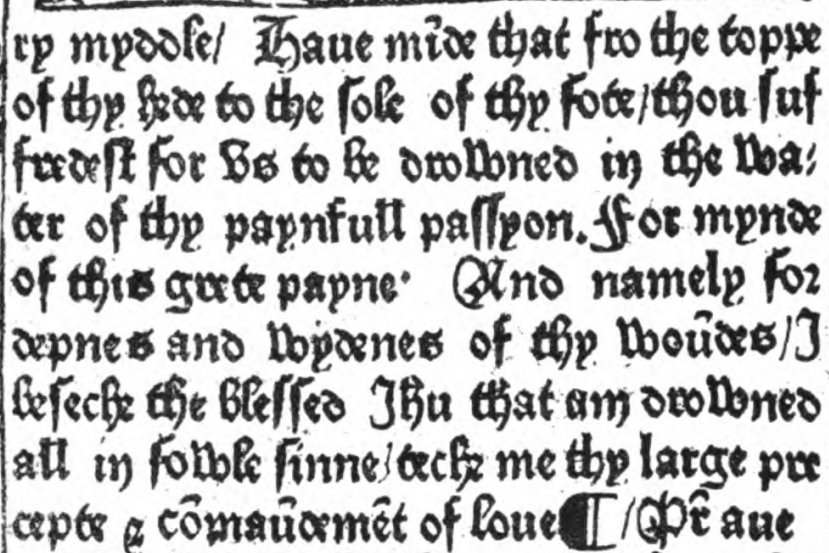 ry myddle/ Haue mīde that fro the toppe
of thy hede to the sole of thy fote/thou suf
fredest for vs to be drowned in the wa⸗
ter of thy paynfull passyon. For mynde
of this grete payne· And namely for
depnes and wydenes of thy woūdes/I
beseche the blessed Jhu that am drowned
all in fowle sinne/teche me thy large pre
cepte ⁊ cōmaūdemēt of loue¶/Pr̄ aue